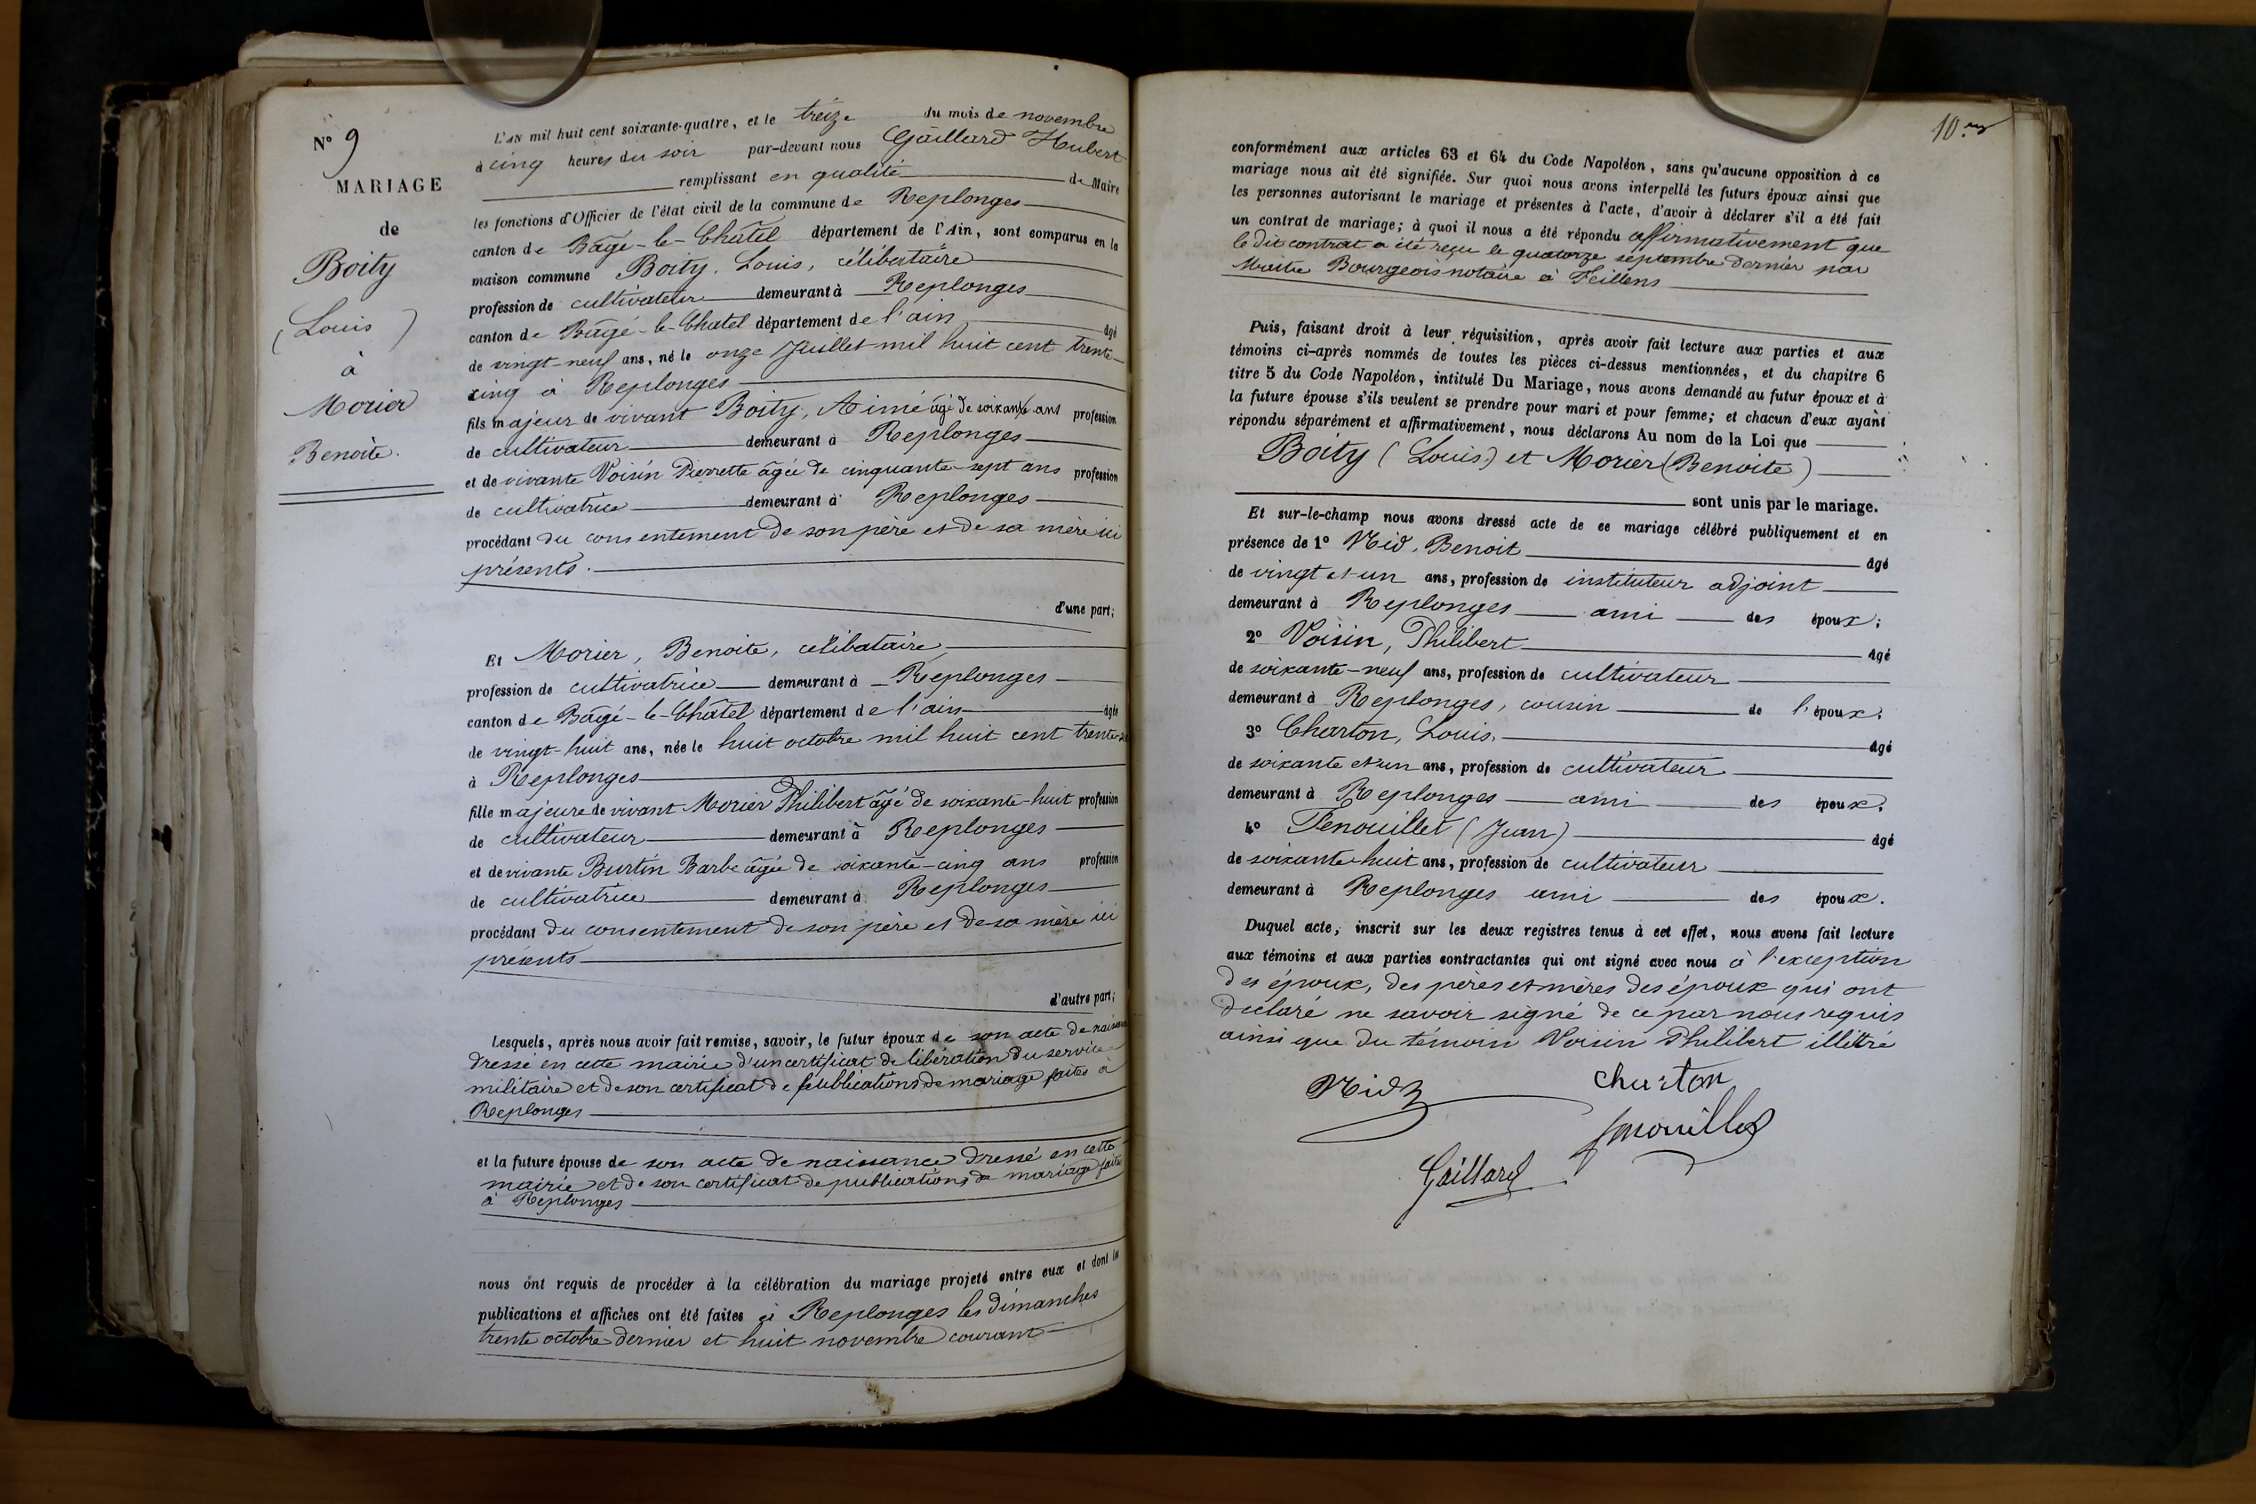 N° 9
MARIAGE
de
Boity
(Louis)
à
Morier
Benoite.
L'AN mil huit cent soixante-quatre, et le treize du mois de novembre
à cinq heures du soir par-devant nous Gaillard Hubert
remplissant en qualité de Maire
les fonctions d'Officier de l'état civil de la commune de Replonges
canton de Bâgé-le-Châtel département de l'Ain, sont comparus en la
maison commune Boity, Louis, célibataire
profession de cultivateur demeurant à Replonges
canton de Bâgé-le-Chatel département de l'ain âgé
de vingt-neuf ans, né le onze Juillet mil huit cent trente
cinq à Replonges
fils majeur de vivant Boity, Aimé âgé de soixante ans profession
de cultivateur demeurant à Replonges
et de vivante Voisin Pierrette âgée de cinquante-sept ans profession
de cultivatrice demeurant à Replonges
procédant du consentement de son père et de sa mère ici
présents.
d'une part;
Et Morier, Benoite, célibataire,
profession de cultivatrice demeurant à Replonges
canton de Bâgé-le-Châtel département de l'ain âgée
de vingt-huit ans, née le huit octobre mil huit cent trente-
à Replonges
fille majeure de vivant Morier Philibert âgé de soixante-huit profession
de cultivateur demeurant à Replonges
et de vivante Burtin Barbe âgée de soixante-cinq ans profession
de cultivatrice demeurant à Replonges
procédant du consentement de son père et de sa mère ici
présents
d'autre part;
Lesquels, après nous avoir fait remise, savoir, le futur époux de son acte de naissance
dressé en cette mairie d'un certificat de libération du service
militaire et de son certificat de publications de mariage faites à
Replonges
et la future épouse de son acte de naissance dressé en cette
mairie et de son certificat de publications de mariage faites
à Replonges
nous ont requis de procéder à la célébration du mariage projeté entre eux et dont les
publications et affiches ont été faites à Replonges les dimanches
trente octobre dernier et huit novembre courant
10.
conformément aux articles 63 et 64 du Code Napoléon, sans qu'aucune opposition à ce
mariage nous ait été signifiée. Sur quoi nous avons interpellé les futurs époux ainsi que
les personnes autorisant le mariage et présentes à l'acte, d'avoir à déclarer s'il a été fait
un contrat de mariage; à quoi il nous a été répondu affirmativement que
le dit contrat a été reçu le quatorze septembre dernier par
Maitre Bourgeois notaire à Feillens
Puis, faisant droit à leur réquisition, après avoir fait lecture aux parties et aux
témoins ci-après nommés de toutes les pièces ci-dessus mentionnées, et du chapitre 6
titre 5 du Code Napoléon, intitulé Du Mariage, nous avons demandé au futur époux et à
la future épouse s'ils veulent se prendre pour mari et pour femme; et chacun d'eux ayant
répondu séparément et affirmativement, nous déclarons Au nom de la Loi que
Boity (Louis) et Morier (Benoite)
sont unis par le mariage.
Et sur-le-champ nous avons dressé acte de ce mariage célébré publiquement et en
présence de 1° Nid, Benoit âgé
de vingt et un ans, profession de instituteur adjoint
demeurant à Replonges ami des époux;
2° Voisin, Philibert âgé
de soixante-neuf ans, profession de cultivateur
demeurant à Replonges, cousin de l'époux;
3° Charton, Louis, âgé
de soixante et un ans, profession de cultivateur
demeurant à Replonges ami des époux;
4° Fenouillet (Jean) âgé
de soixante-huit ans, profession de cultivateur
demeurant à Replonges ami des époux.
Duquel acte, inscrit sur les deux registres tenus à cet effet, nous avons fait lecture
aux témoins et aux parties contractantes qui ont signé avec nous à l'exception
des époux, des pères et mères des époux qui ont
declaré ne savoir signé de ce par nous requis
ainsi que du témoin Voisin Philibert illétré
Nid
Charton
fenouillet
Gaillard